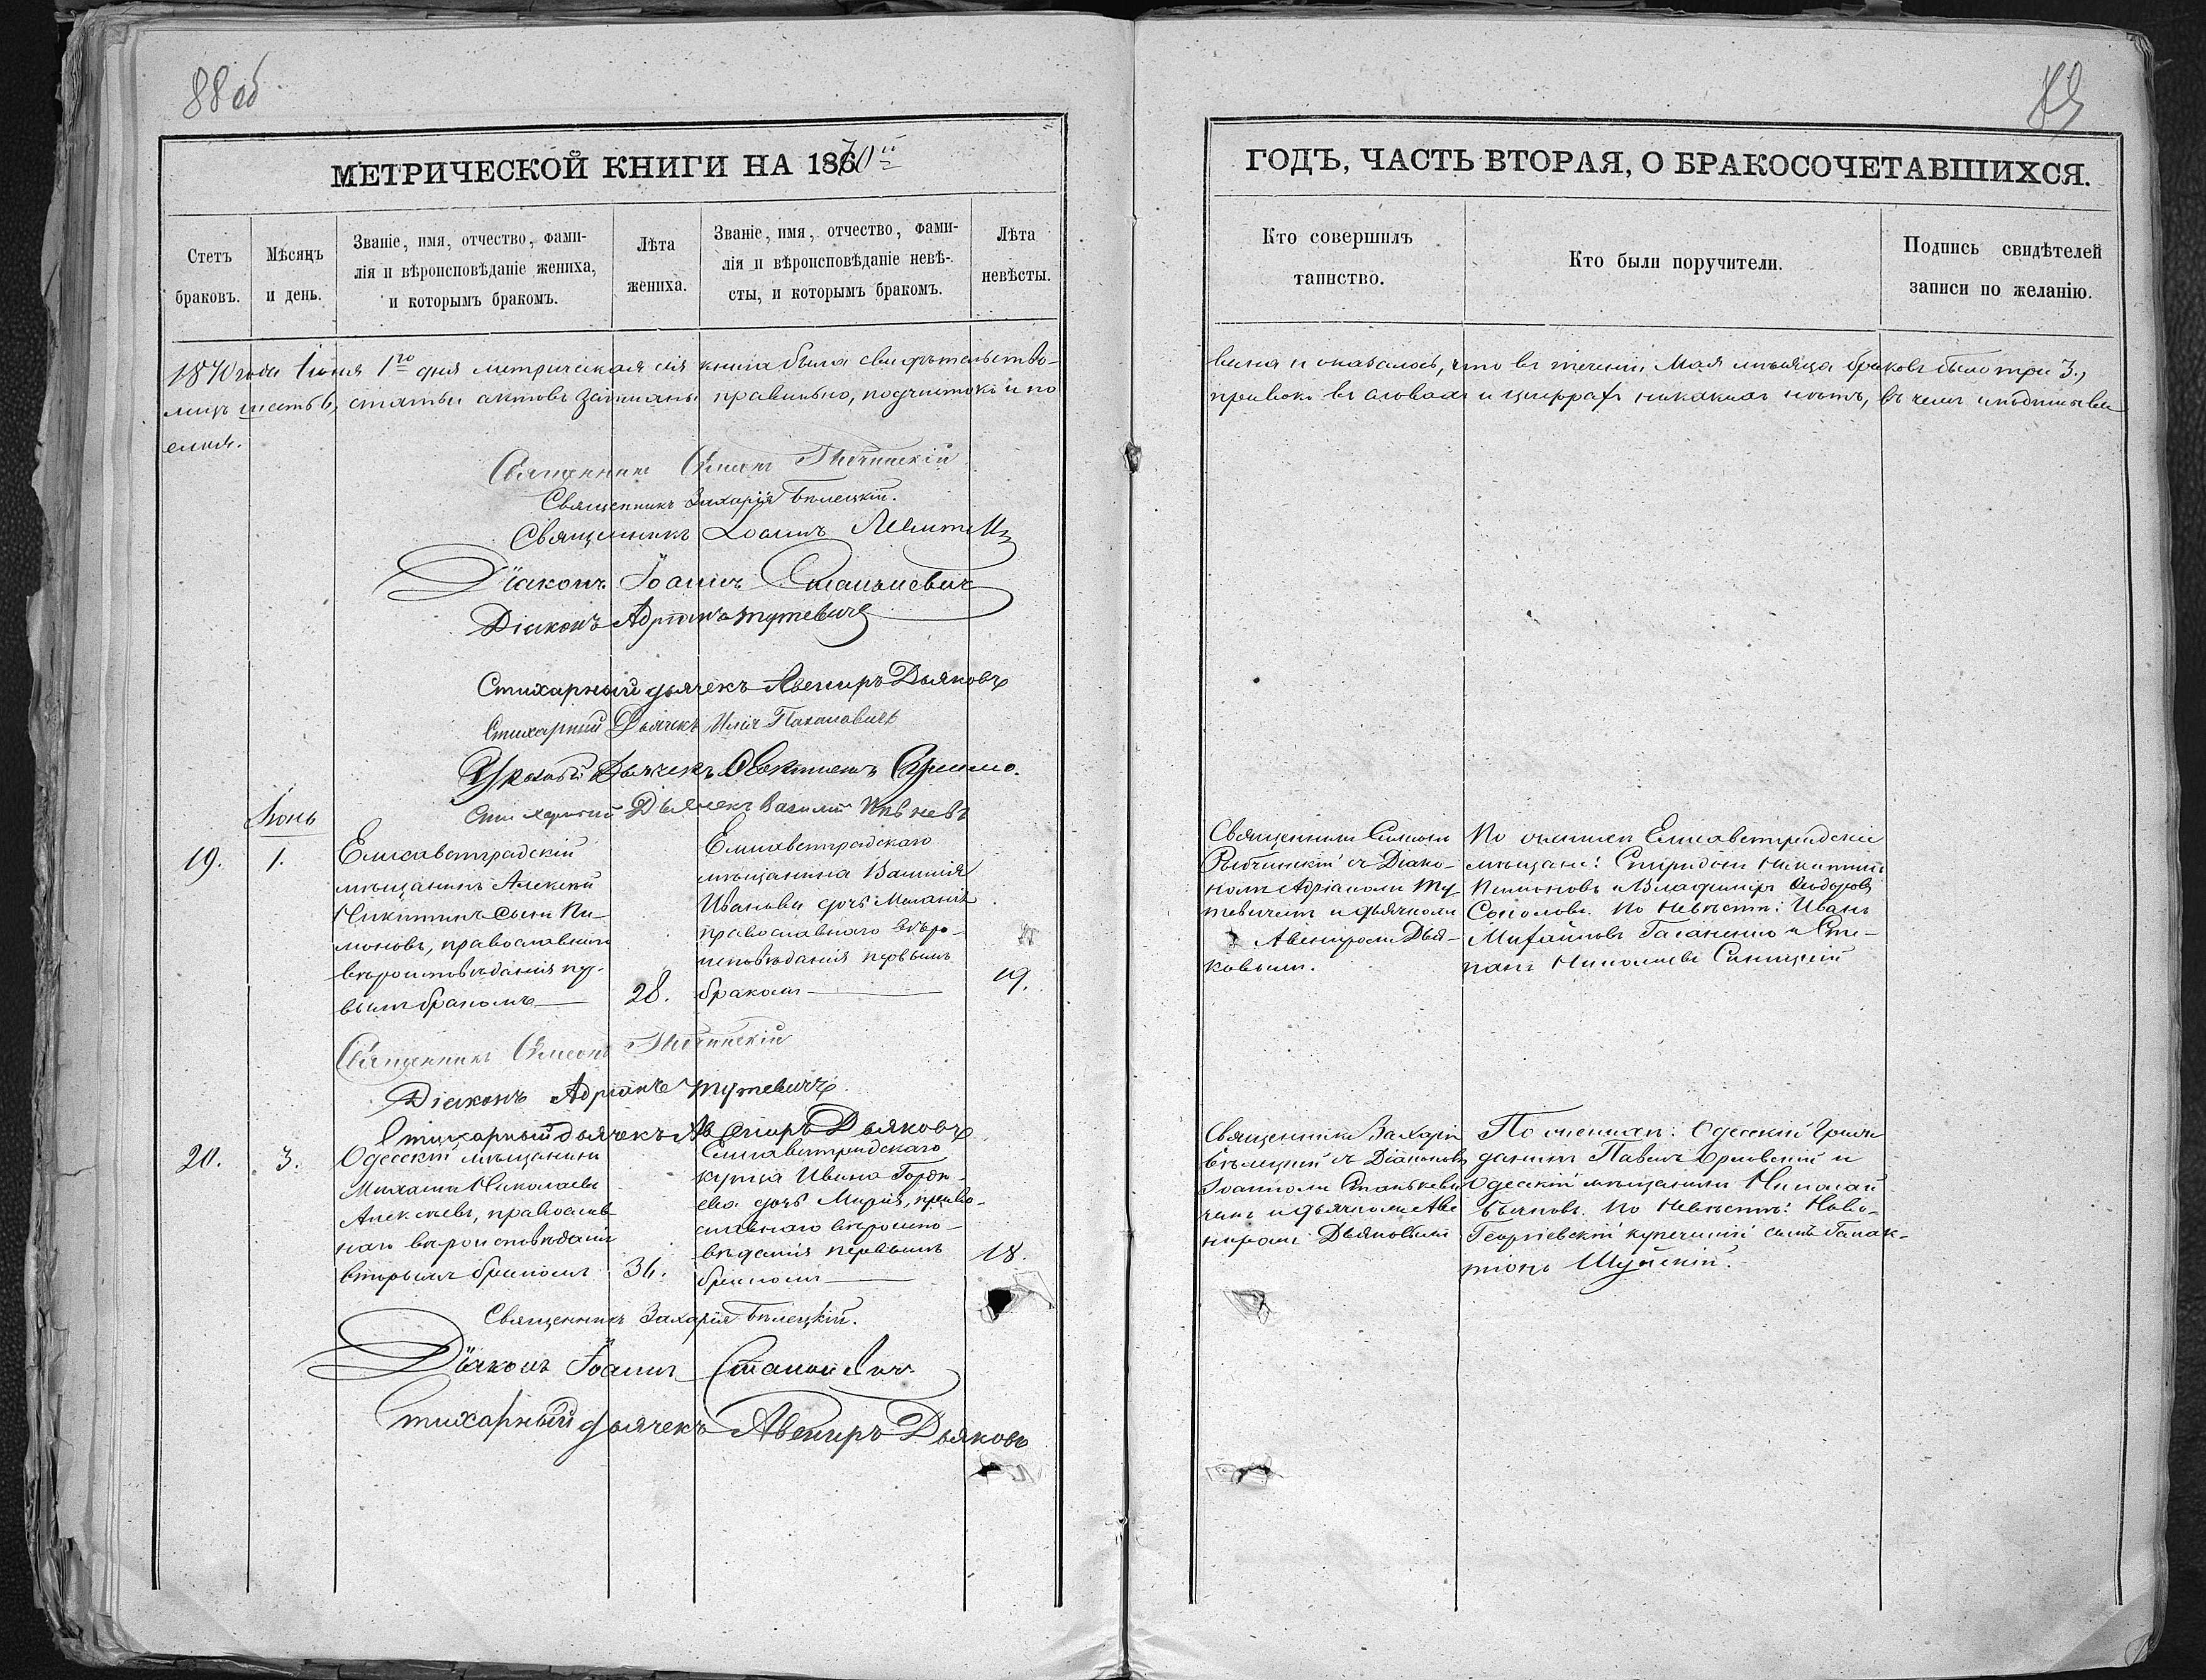 88 об
89
МЕТРИЧЕСКОЙ КНИГИ НА 1870й
ГОДЪ, ЧАСТЬ ВТОРАЯ, О БРАКОСОЧЕТАВШИХСЯ.
Счетъ
браковъ.
Мѣсяцъ
и день.
Званіе, имя, отчество, фами-
лія и вѣроисповѣданіе жениха,
и которымъ бракомъ.
Лѣта
жениха.
Званіе, имя, отчество, фами-
лія и вѣроисповѣданіе невѣ-
сты, и которымъ бракомъ.
Лѣта
невѣсты.
Кто совершилъ
таинство.
Кто были поручители.
Подпись свидѣтелей
записи по желанію.
1870 года Іюня 1го дня метрическая сія книга была свидѣтельство-
вана и оказалось, что въ теченіи Мая мѣсяца браковъ было три 3.,
лицъ шесть 6, статьи актовъ записаны правильно, подчистокъ и по
правокъ въ словахъ и цифрахъ никакихъ нѣтъ, въ чемъ и подписы
емся.
Священникъ Симеонъ
Священникъ Захарія Бѣлецкій.
Священникъ Іоаннъ
Діаконъ Іоаннъ Станкевичъ
Діаконъ Адріанъ Тутевичъ
Стихарный дьячекъ Авениръ Дьяковъ
Стихарный Дьячекъ Илія
Дьячекъ
Стихарный Дьячекъ Василій
Іюнь
19.
1.
Елисаветградскій
мѣщанинъ Алексѣй
Никитинъ сынъ Пи-
моновъ, православнаго
вѣроисповѣданія пер-
вымъ бракомъ
28.
Елисаветградскаго
мѣщанина Василія
Иванова дочь Меланія
православнаго вѣро-
исповѣданія первымъ
бракомъ
19.
Священникъ Симеонъ
съ Діако-
номъ Адріаномъ Ту
тевичемъ и дьячкомъ
Авениромъ Дья-
ковымъ.
По женихѣ Елисаветградскіе
мѣщане: Спиридонъ Никитинъ
Пимоновъ и Владимиръ Ѳеодоровъ
Соколовъ. По невѣстѣ: Иванъ
Михайловъ и Сте-
панъ Николаевъ Синицкій
Священникъ Симеонъ
Діаконъ Адріанъ Тутевичъ.
Стихарный дьячекъ Авениръ Дьяковъ
20.
3.
Одесскій мѣщанинъ
Михаилъ Николаевъ
Алексѣевъ, православ
наго вѣроисповѣданія
вторымъ бракомъ
Елисаветградскаго
купца Ивана
ева дочь Марія, право-
славнаго вѣроиспо-
вѣданія первымъ
бракомъ
18.
Священникъ Захарія
Бѣлецкій съ Діакономъ
Іоанномъ Станкеви
чемъ и дьячкомъ Аве
ниромъ Дьяковымъ
По женихѣ: Одесскій граж
данинъ Павелъ Орловскій и
Одесскій мѣщанинъ Николай
Бычковъ. По невѣстѣ: Ново-
Георгіевскій купеческій сынъ Галак-
тіонъ Шуйскій.
Священникъ Захарія Бѣлецкій.
Діаконъ Іоаннъ Станкевичъ
Стихарный дьячекъ Авениръ Дьяковъ